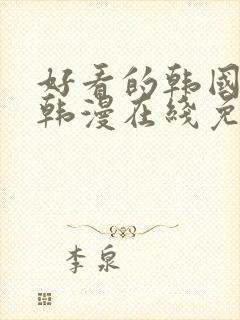 好看的韩国
韩漫在线免
李泉